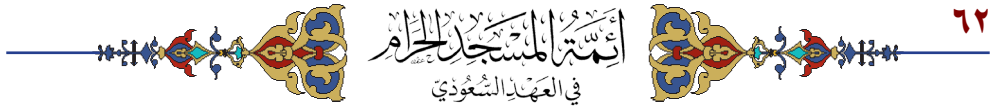 ٦٢
أئمة المسجد الحرام
في العهد السعودي